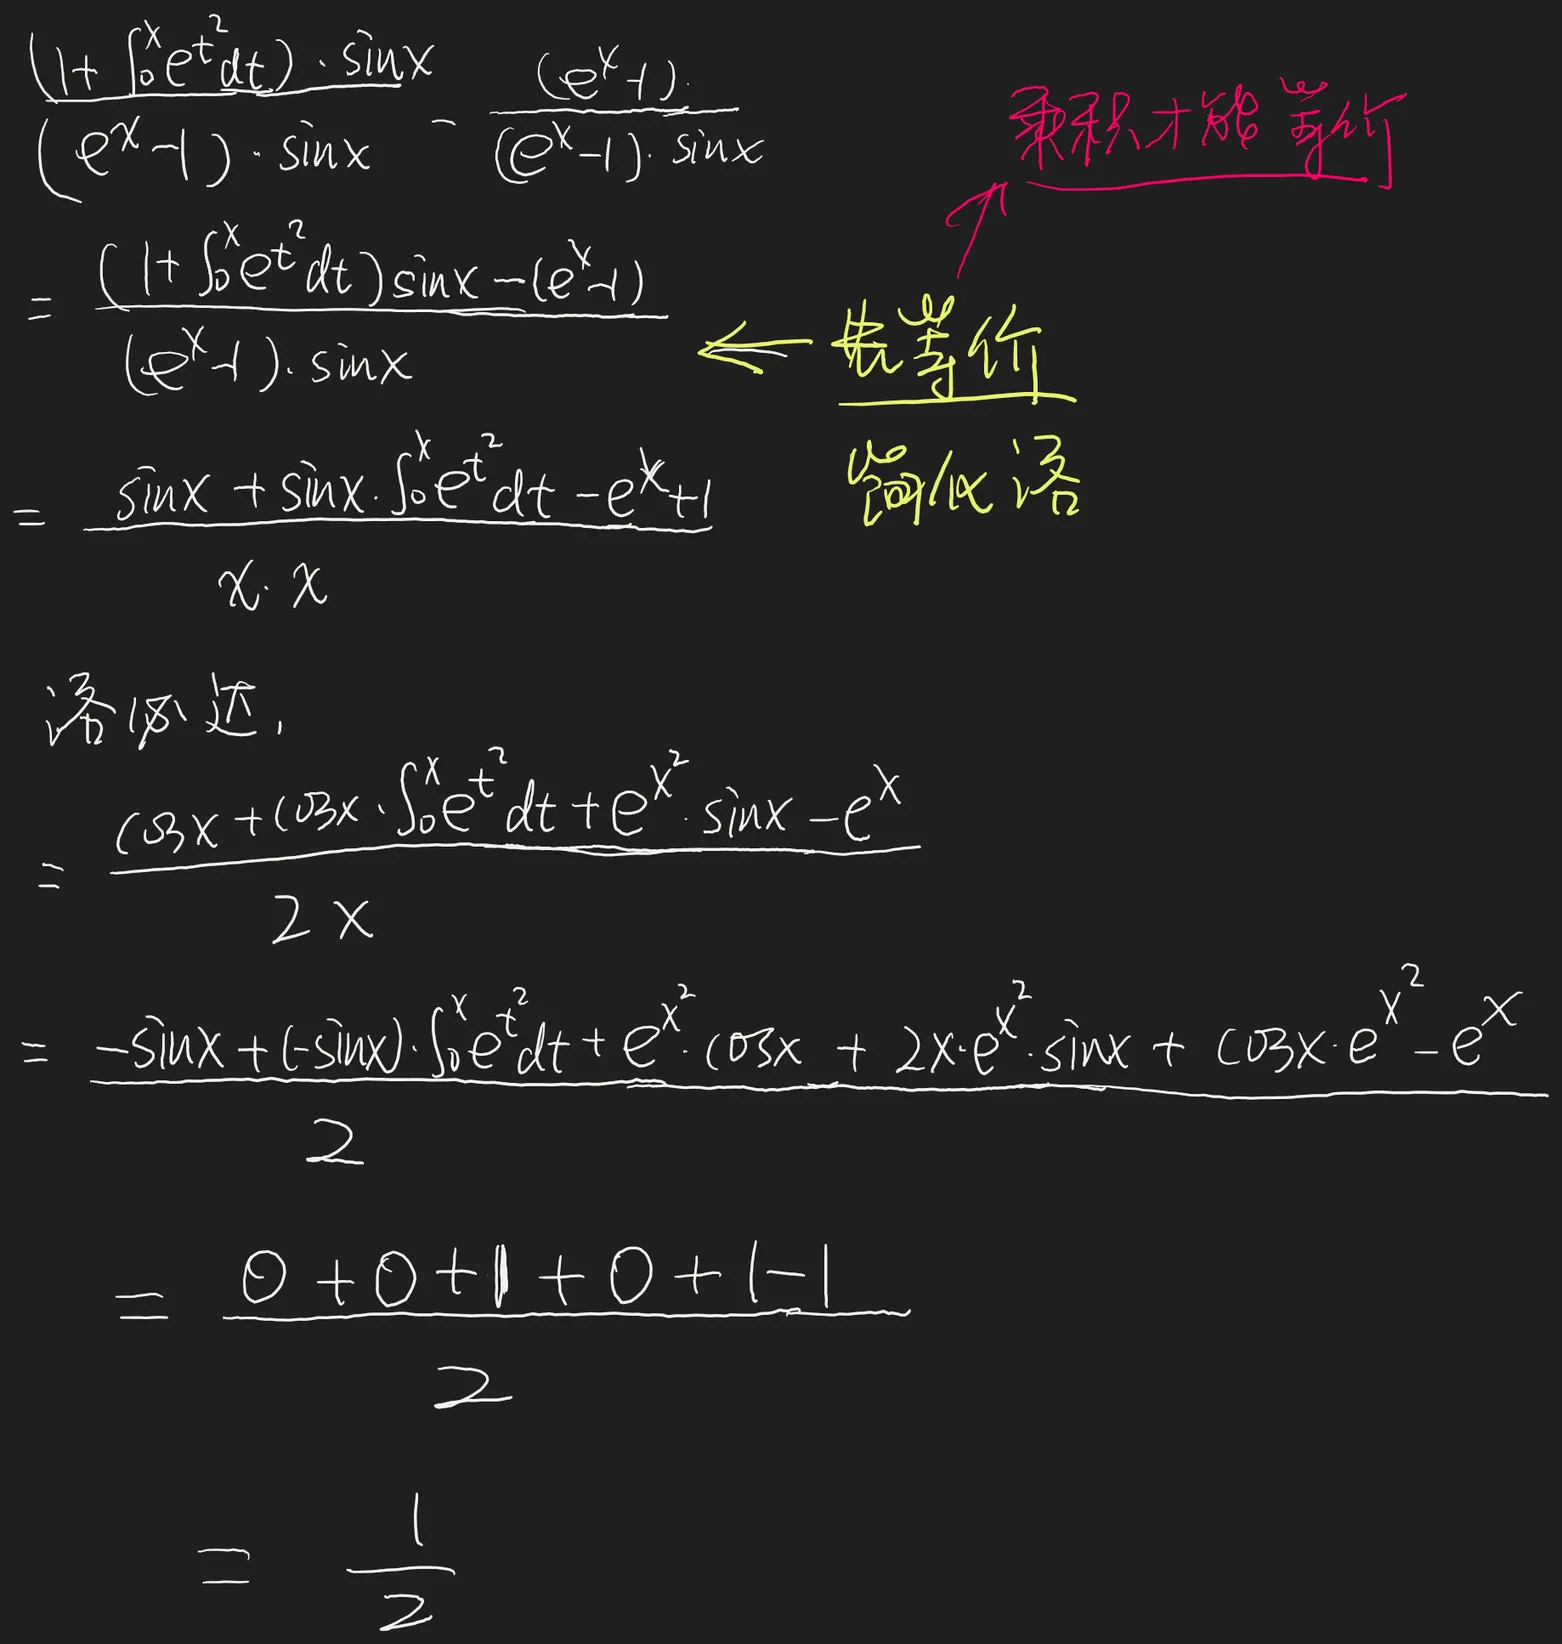 (1+∫₀ˣe^{t²}dt)·sinx / (eˣ-1)·sinx - (eˣ-1)· / (eˣ-1)·sinx
乘积才能等价
= (1+∫₀ˣe^{t²}dt)sinx-(eˣ-1) / (eˣ-1)·sinx
← 先等价
= sinx+sinx·∫₀ˣe^{t²}dt-eˣ+1 / x·x
简化洛
洛必达,
= cosx+cosx·∫₀ˣe^{t²}dt+e^{x²}·sinx-eˣ / 2x
= -sinx+(-sinx)·∫₀ˣe^{t²}dt+e^{x²}·cosx+2x·e^{x²}·sinx+cosx·e^{x²}-eˣ / 2
= 0+0+1+0+1-1 / 2
= 1 / 2